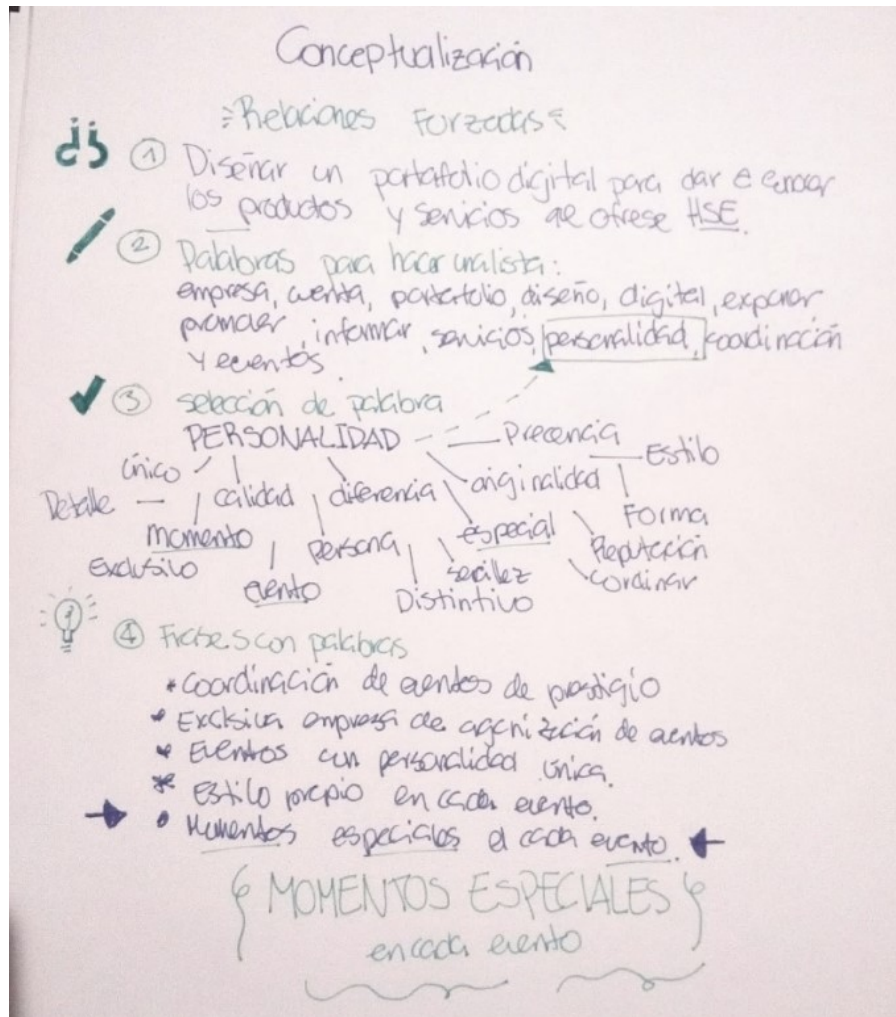 Conceptualización
Relaciones Forzadas
¿?
1 Diseñar un portafolio digital para dar e conocer
los productos y servicios que ofrese HSE.
2 Palabras para hacer una lista:
empresa, cuenta, portafolio, diseño, digital, exponer
promover, informar, servicios, personalidad, coordinación
y eventos.
3 selección de palabra
PERSONALIDAD Precencia
único Estilo
Detalle calidad diferencia originalidad
momento persona especial Forma
Exclusivo Reputación
evento Distintivo cordinar
4 Frases con palabras
* Coordinación de eventos de prestigio
* Exclsiva empresa de organización de eventos
* Eventos con personalidad única.
* Estilo propio en cada evento.
• Momentos especiales el cada evento.
MOMENTOS ESPECIALES
en cada evento